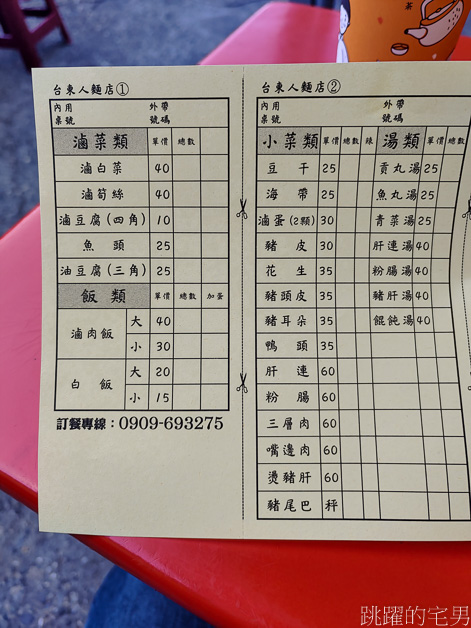 台東人麵店①
內用 外帶
桌號 號碼
滷菜類 單價 總數
滷白菜 40
滷筍絲 40
滷豆腐(四角) 10
魚頭 25
油豆腐(三角) 25
飯類 單價 總數 加蛋
滷肉飯 大 40
小 30
白飯 大 20
小 15
訂餐專線：0909-693275
台東人麵店②
內用 外帶
桌號 號碼
小菜類 單價 總數 辣 湯類 單價 總數
豆干 25 貢丸湯 25
海帶 25 魚丸湯 25
滷蛋(2顆) 30 青菜湯 25
豬皮 30 肝連湯 40
花生 35 粉腸湯 40
豬頭皮 35 豬肝湯 40
豬耳朵 35 餛飩湯 40
鴨頭 35
肝連 60
粉腸 60
三層肉 60
嘴邊肉 60
燙豬肝 60
豬尾巴 秤
茶
跳躍的宅男